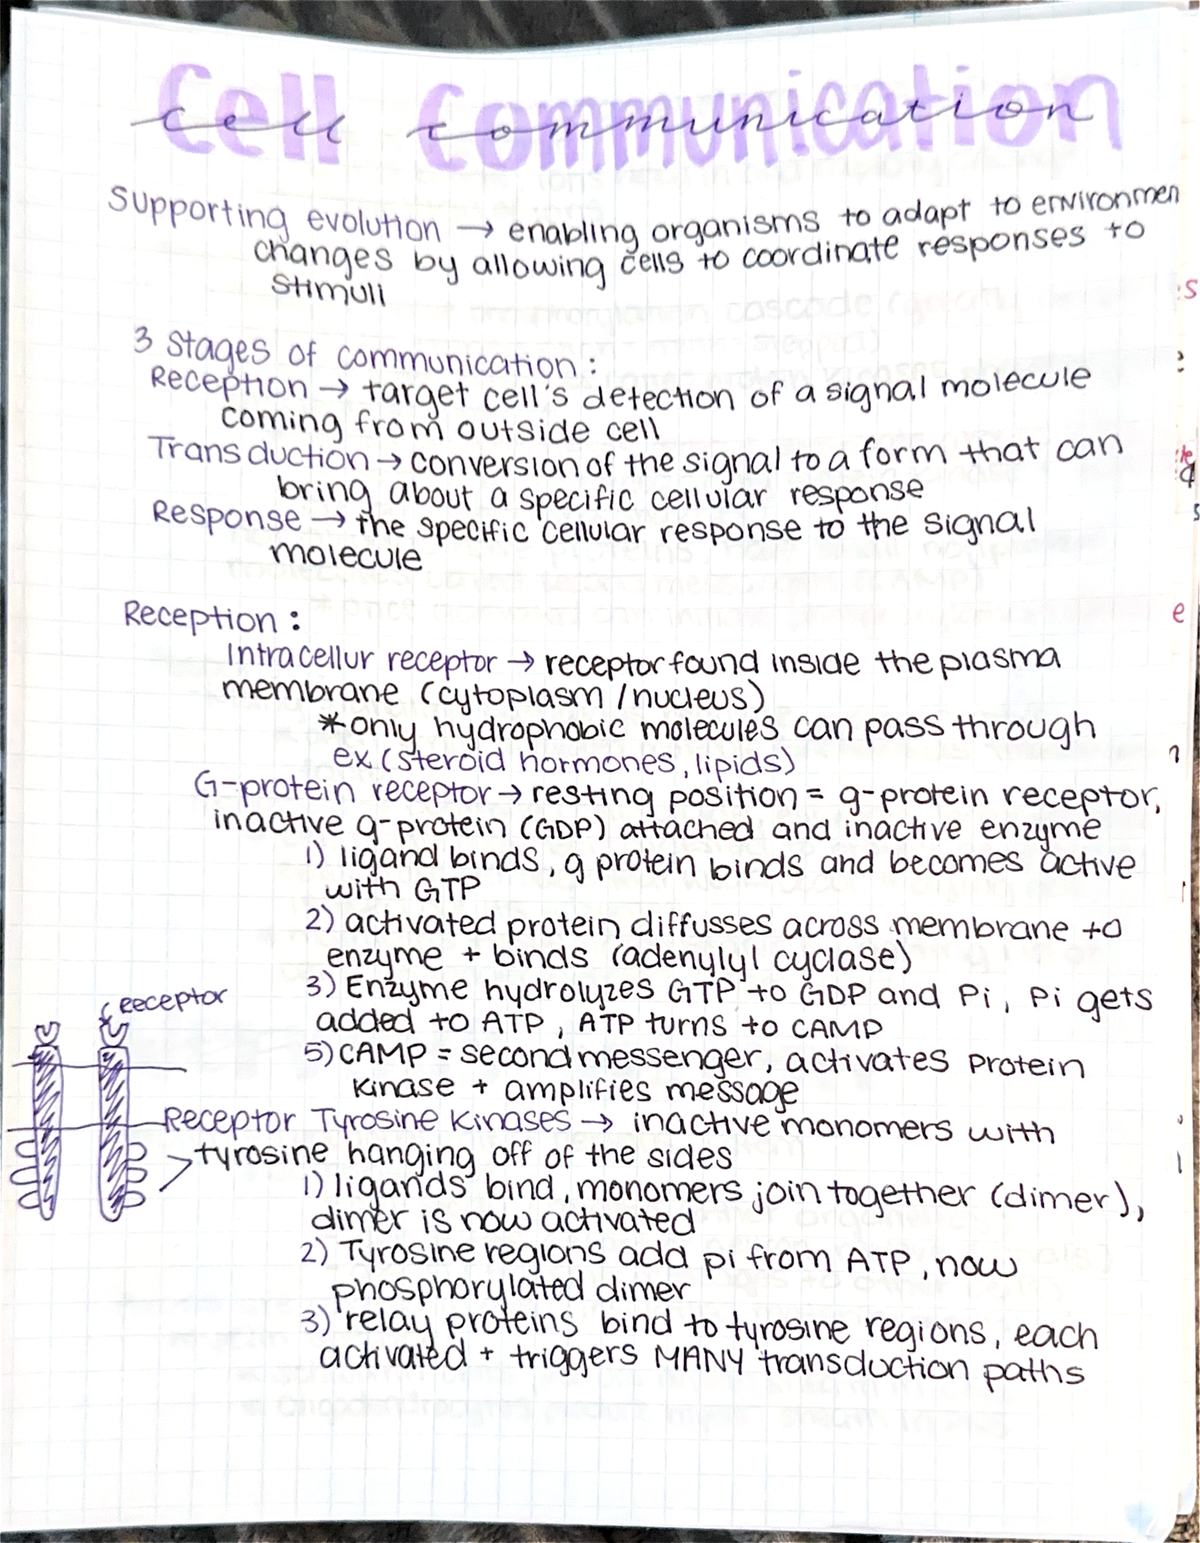 Cell Communication
cell communication
Supporting evolution → enabling organisms to adapt to environmen
changes by allowing cells to coordinate responses to
stimuli
3 Stages of communication:
Reception → target cell's detection of a signal molecule
coming from outside cell
Transduction → conversion of the signal to a form that can
bring about a specific cellular response
Response → the specific cellular response to the signal
molecule
Reception:
Intracellur receptor → receptor found inside the plasma
membrane (cytoplasm/nucleus)
*only hydrophobic molecules can pass through
ex (steroid hormones, lipids)
G-protein receptor → resting position = g-protein receptor,
inactive g-protein (GDP) attached and inactive enzyme
1) ligand binds, g protein binds and becomes active
with GTP
2) activated protein diffusses across membrane to
enzyme + binds (adenylyl cyclase)
3) Enzyme hydrolyzes GTP to GDP and Pi, Pi gets
added to ATP, ATP turns to CAMP
5) CAMP = second messenger, activates Protein
Kinase + amplifies message
receptor
Receptor Tyrosine Kinases → inactive monomers with
tyrosine hanging off of the sides
1) ligands bind, monomers join together (dimer),
dimer is now activated
2) Tyrosine regions add pi from ATP, now
phosphorylated dimer
3) relay proteins bind to tyrosine regions, each
activated + triggers MANY transduction paths